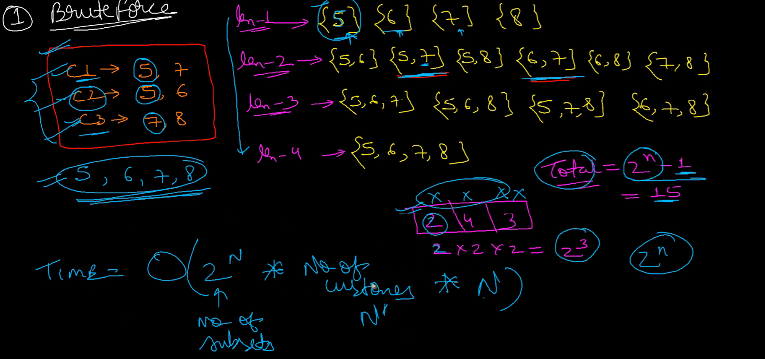 ① Bruteforce
C1 → 5, 7
C2 → 5, 6
C3 → 7, 8
5, 6, 7, 8
len-1 → {5} {6} {7} {8}
len-2 → {5,6} {5,7} {5,8} {6,7} {6,8} {7,8}
len-3 → {5,6,7} {5,6,8} {5,7,8} {6,7,8}
len-4 → {5,6,7,8}
Total = 2^n - 1
= 15
x x x x
2 4 3
2 x 2 x 2 = 2^3
2^n
Time = O(2^N * No of customers * N)
N'
no of subsets